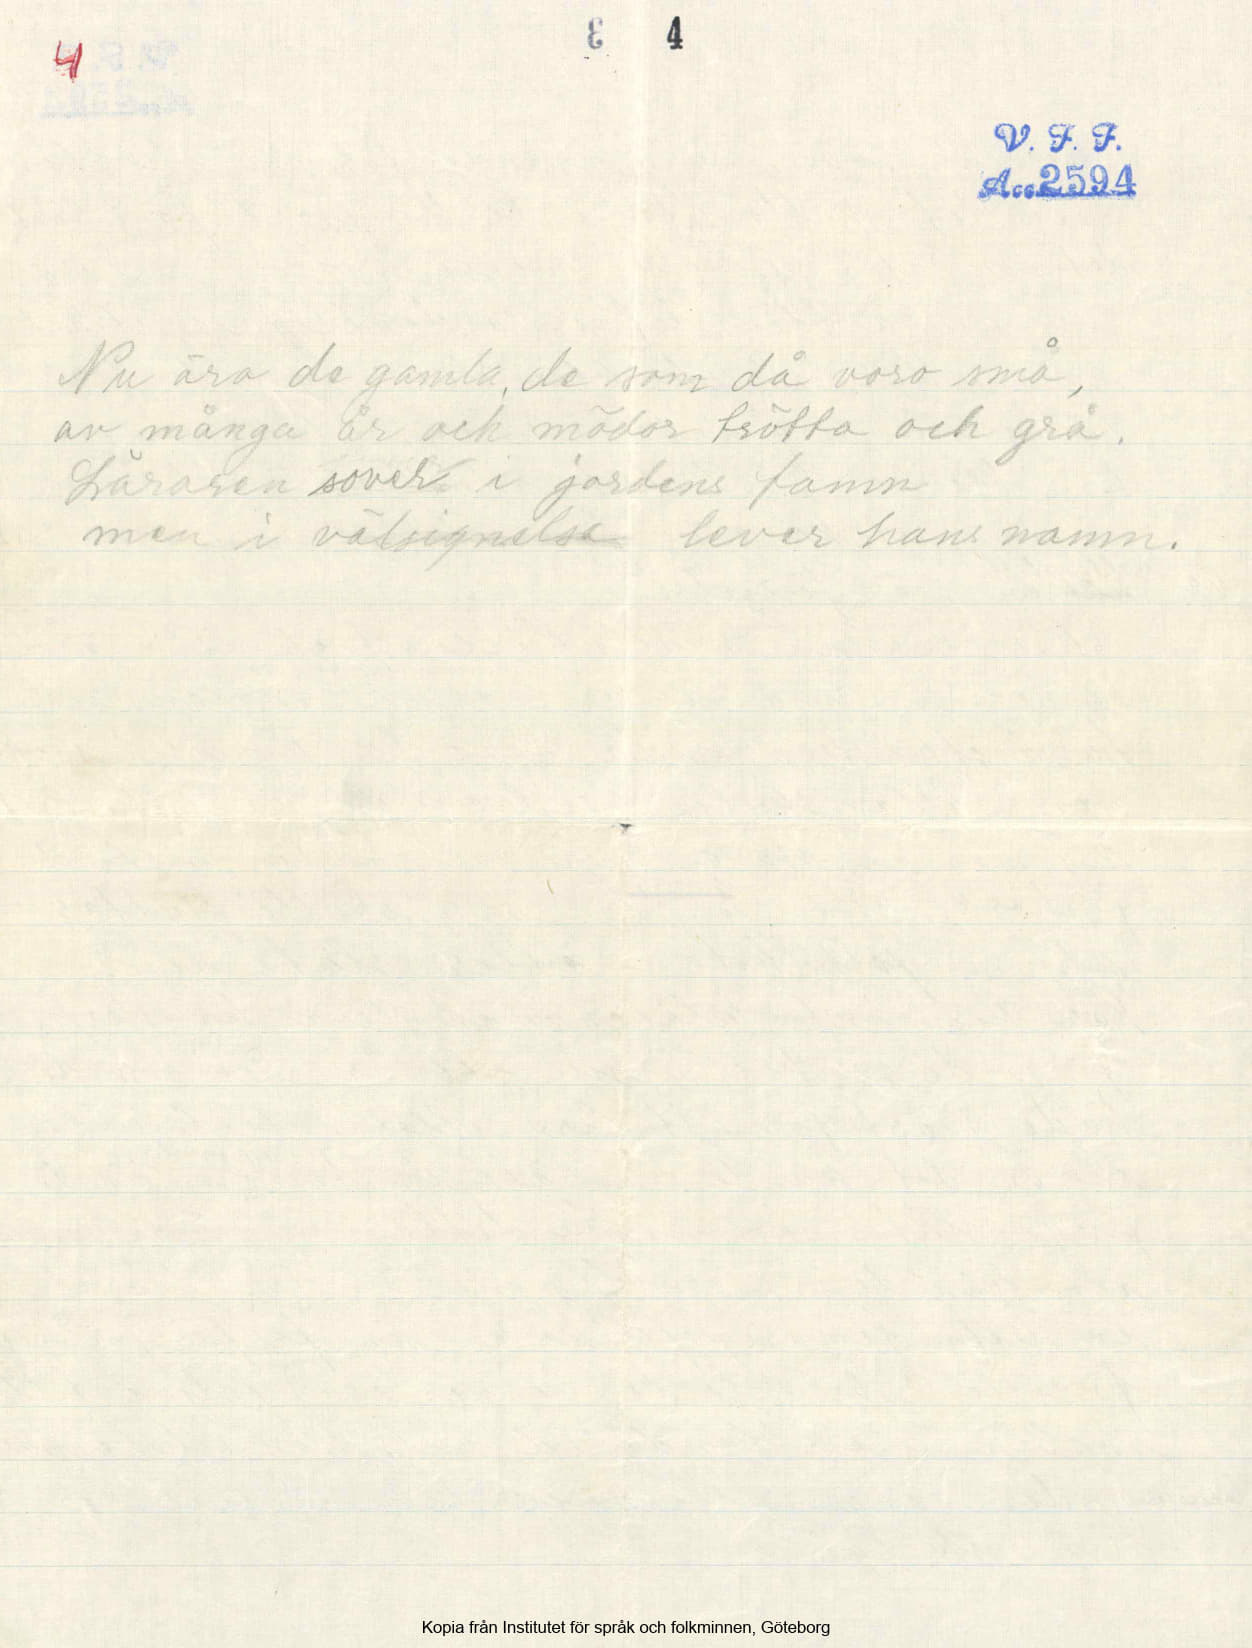 4
4
V. F. F.
Acc 2594
Nu äro de gamla, de som då voro små,
av många år och mödor trötta och grå.
Läraren sover i jordens famn
men i välsignelse lever hans namn.
Kopia från Institutet för språk och folkminnen, Göteborg